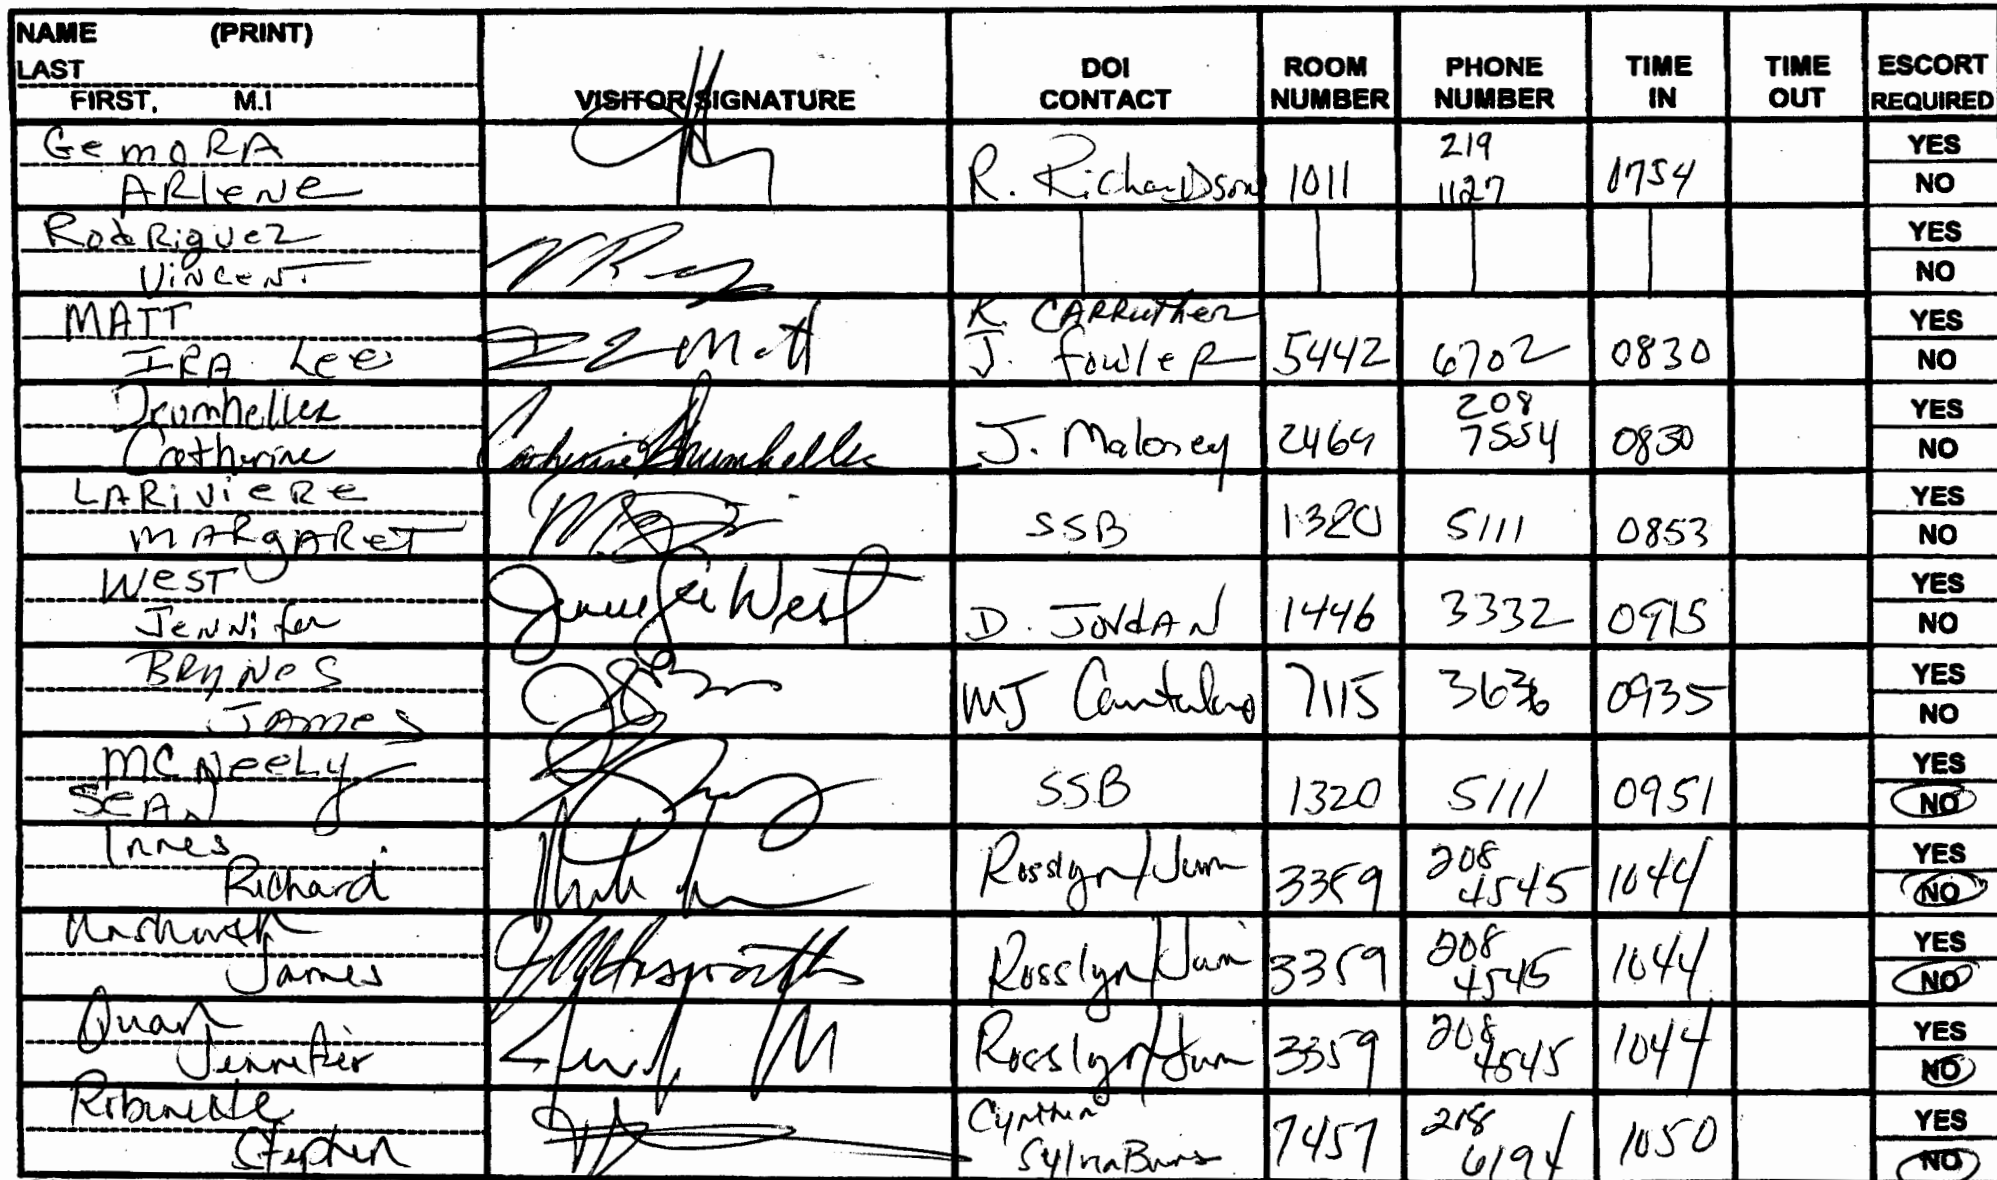 NAME (PRINT)
LAST
FIRST, M.I
VISITOR SIGNATURE
DOI
CONTACT
ROOM
NUMBER
PHONE
NUMBER
TIME
IN
TIME
OUT
ESCORT
REQUIRED
GemoRA
ARleNe
R. RichaRDson 1011 219
1127 0754
YES
NO
RodRiguez
ViNCeNT
YES
NO
MATT
IRA Lee
K. CARRuther
J. fowleR 5442 6702 0830
YES
NO
Drumheller
Catherine
Catherine Drumheller
J. Maloney 2469 208
7554 0830
YES
NO
LARiVieRe
MARgAReT
SSB 1320 5111 0853
YES
NO
WesT
JeNNifer
Jennifer West
D. JoRdAN 1446 3332 0915
YES
NO
BRyNes
JAmes
MJ 7115 3636 0935
YES
NO
MCNeeLy
SEAN
SSB 1320 5111 0951
YES
NO
Innes
Richard
Rosslyn/ 3359 208
4545 1044
YES
NO
James
Rosslyn/ 3359 208
4545 1044
YES
NO
Jennifer
Rosslyn/ 3359 208
4545 1044
YES
NO
Robinette
Stephen
Cynthia
7457 1050
YES
NO